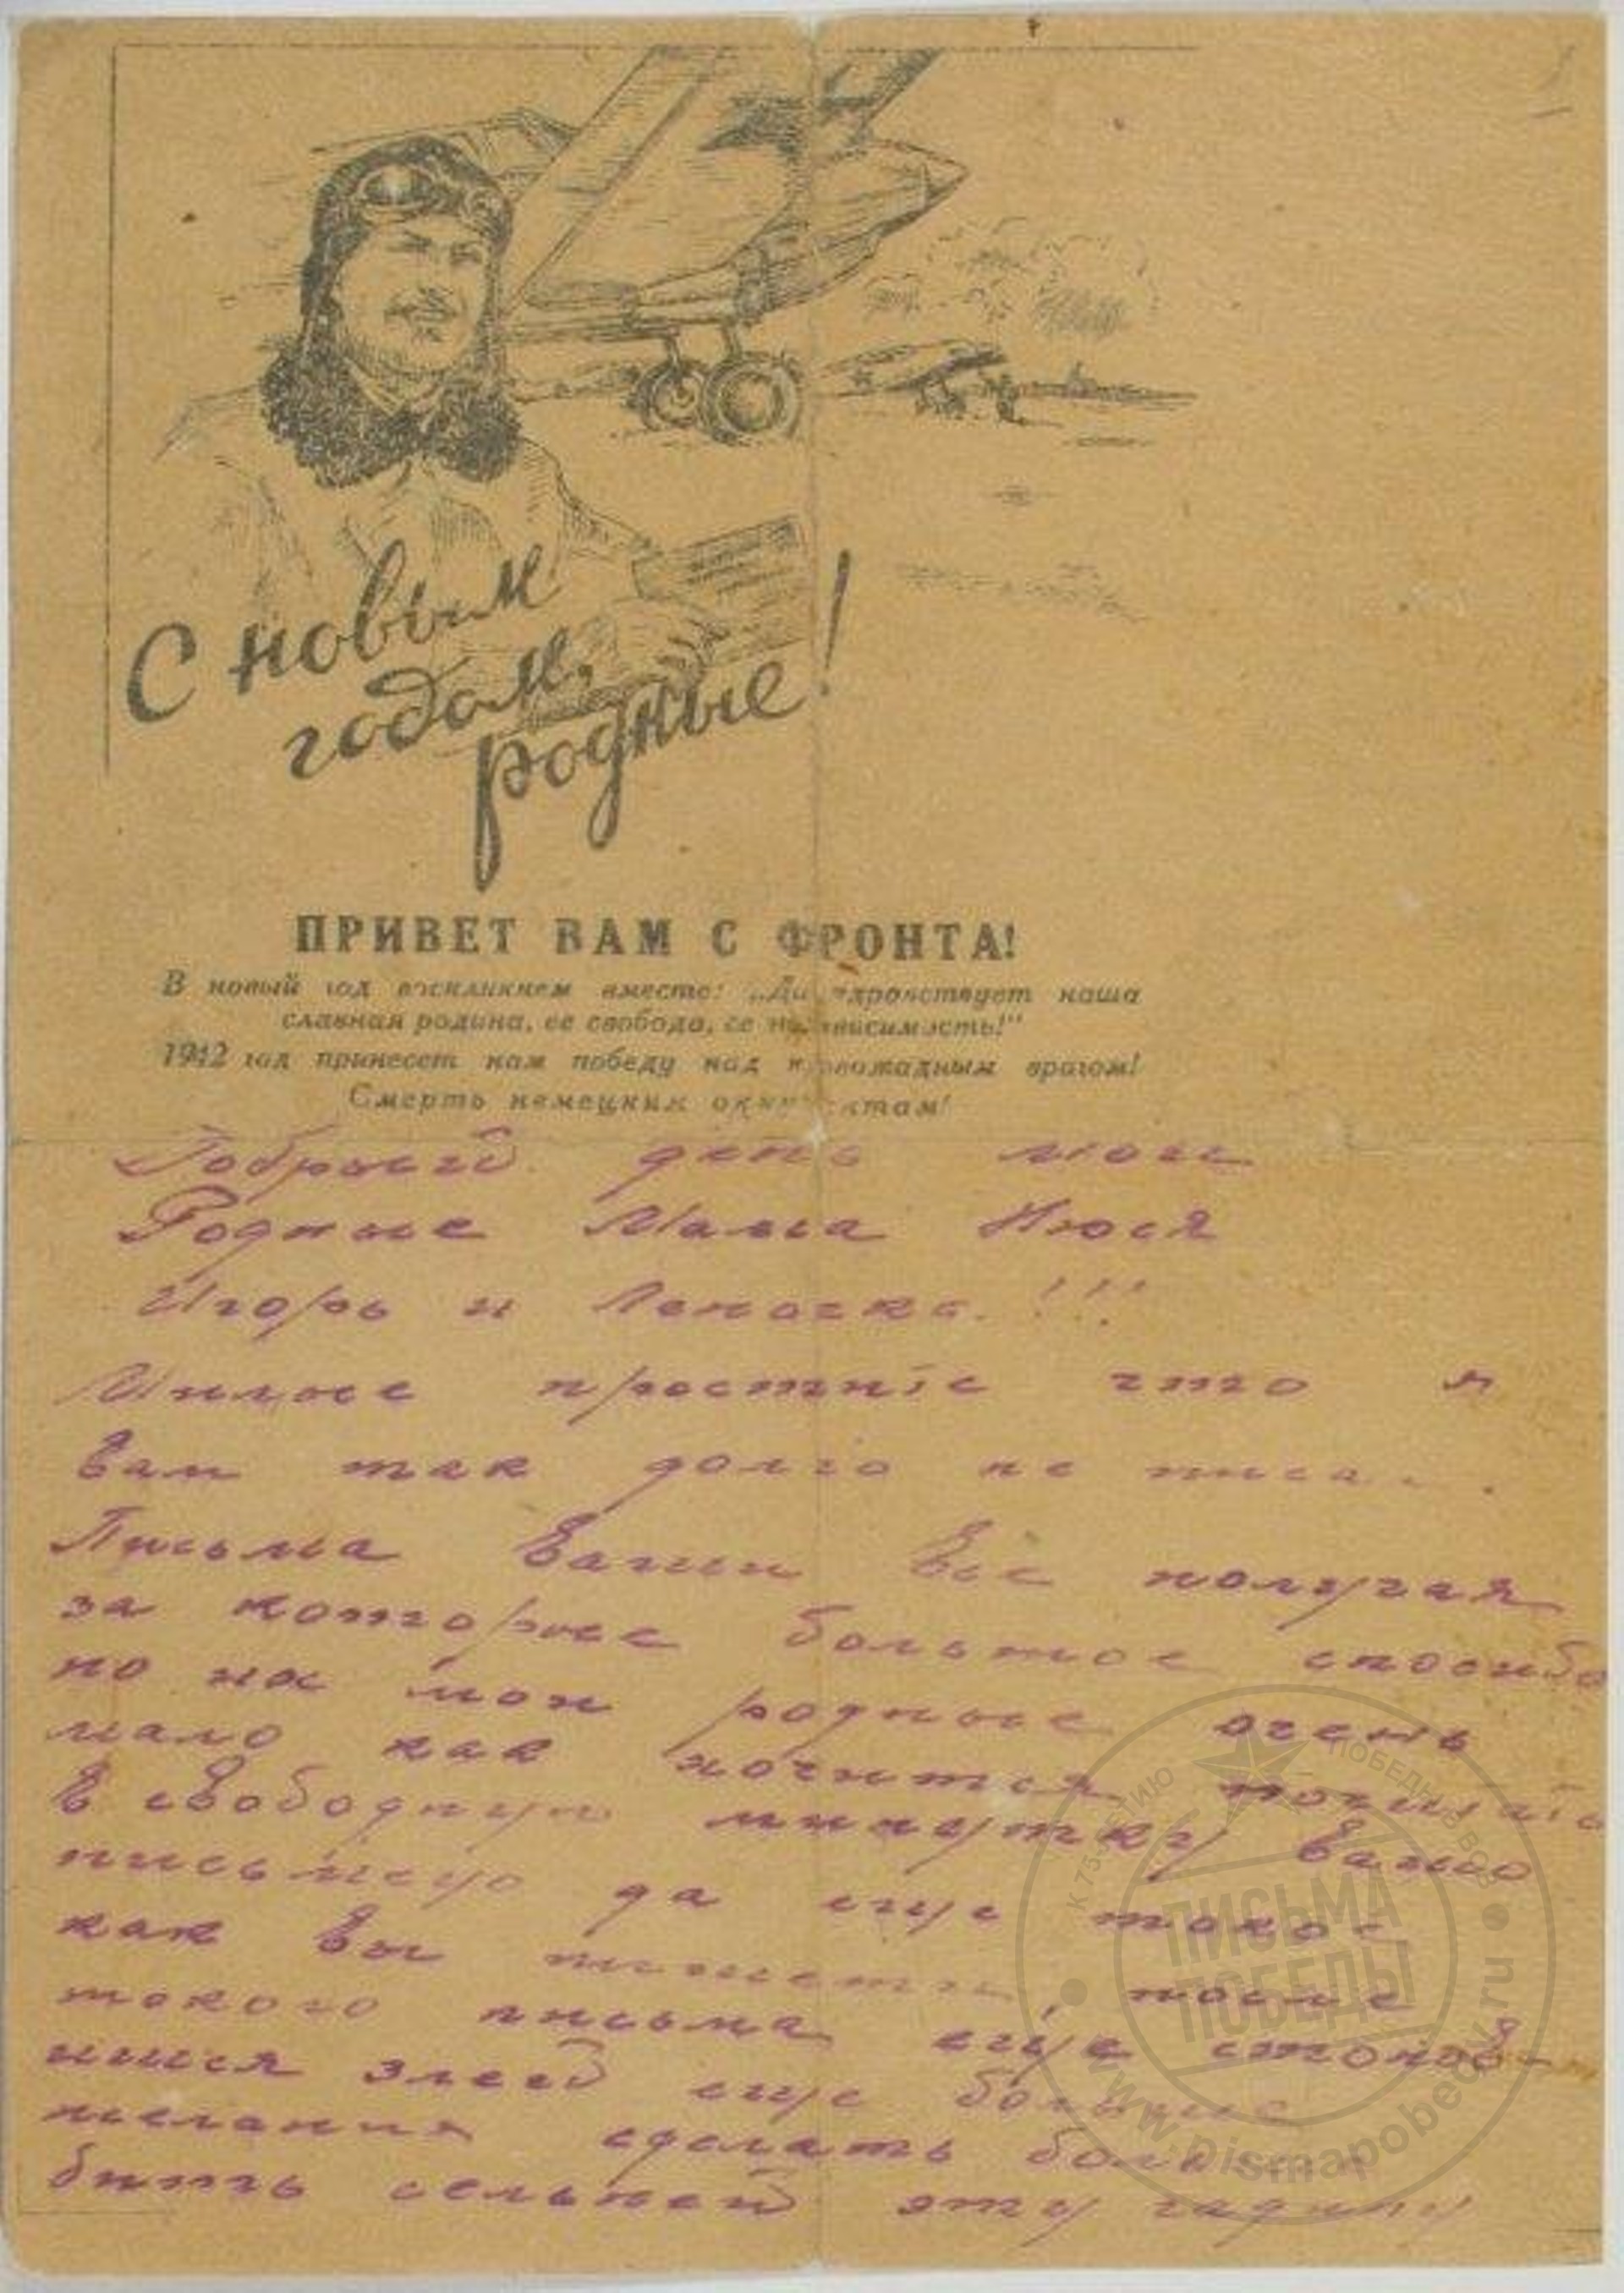 С новым
годом,
родные!
ПРИВЕТ ВАМ С ФРОНТА!
В новый год воскликнем вместе: „Да здравствует наша
славная родина, ее свобода, ее независимость!“
1942 год принесет нам победу над кровожадным врагом!
Смерть немецким оккупантам!
Добрый день мои
Родные Мама Нюся
Игорь и Леночка. !!!
Милые простите что я
Вам так долго не писал.
Письма Ваши все получая
за которые большое спосибо
но их мои родные очень
мало как хочится почитать
В свободную минутку Ваше
письмецо да еще такое
как Вы пишети, после
такого письма еще станов-
ишся злей еще больше
желания сделать боле
бить сельней эту гадину
К 75-ЛЕТИЮ ПОБЕДЫ В ВОВ
ПИСЬМА
ПОБЕДЫ
www.pismapobedy.ru